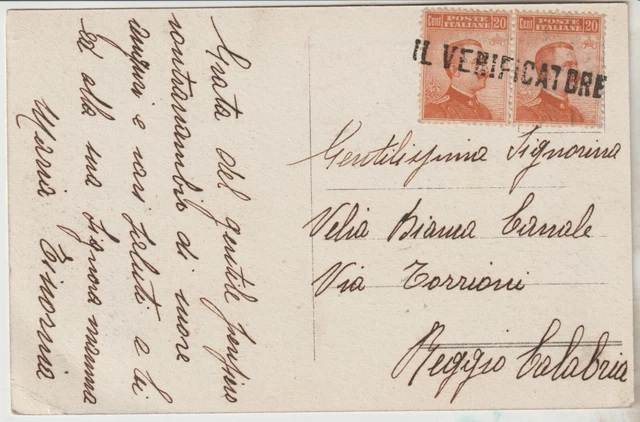 Grata del gentile pensiero
contraccambio di cuore
auguri e cari saluti a lei
ed alla sua Signora mamma
Maria
Cent POSTE ITALIANE 20
Cent POSTE ITALIANE 20
IL VERIFICATORE
Gentilissima Signorina
Velia Bianca Canale
Via Torrioni
Reggio Calabria